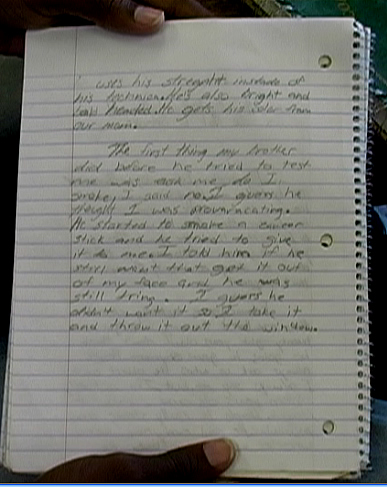 uses his strength instead of
his technion. He's also bright and
headed. He gets his color from
our mom.
The first thing my brother
did before he tried to test
me was ask me do I
smoke, I said no. I guess he
thought I was
He started to smoke a cancer
stick and he tried to give
it to me. I told him if he
that get it out
of my face and he was
still tring. I guess he
didn't want it so I take it
and throw it out the window.